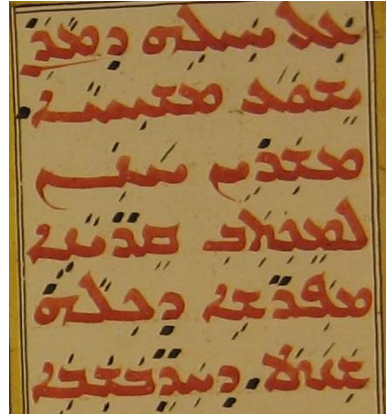 ܥܠ ܚܝܠܗ ܕܡܪܢ
ܝܫܘܥ ܡܫܝܚܐ
ܡܫܪܝܢ ܚܢܢ
ܠܡܟܬܒ ܩܪ̈ܝܢܐ
ܡܦܪ̈ܫܐ ܕܟܠܗ
ܫܢܬܐ. ܕܚܕ̈ܒܫܒܐ